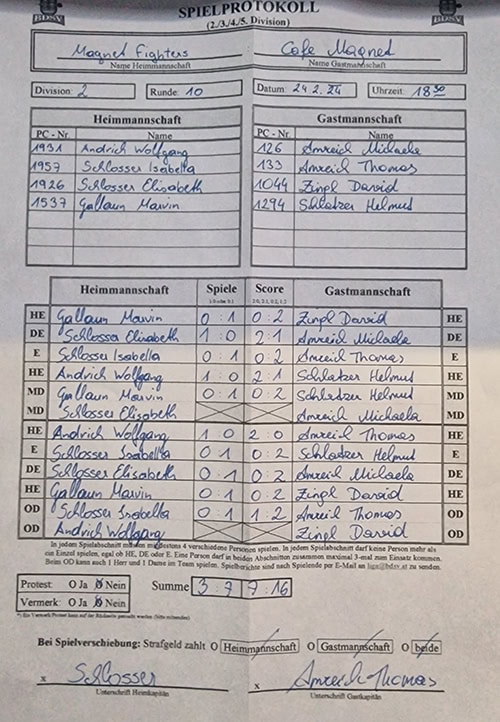 BDSV SPIELPROTOKOLL BDSV
(2./3./4./5. Division)
Magned Fighters Cafe Magned
Name Heimmannschaft Name Gastmannschaft
Division: 2 Runde: 10 Datum: 24.2.24 Uhrzeit: 18 30
Heimmannschaft Gastmannschaft
PC - Nr. Name PC - Nr. Name
1931 Andrich Wolfgang 126 Anreich Michaela
1957 Schlosser Isabella 133 Anreich Thomas
1926 Schlosser Elisabeth 1044 Zingl David
1537 Gallaun Marvin 1294 Schlatzer Helmut
Heimmannschaft Spiele Score Gastmannschaft
1:0 oder 0:1 2:0, 2:1, 0:2, 1:2
HE Gallaun Marvin 0 : 1 0 : 2 Zingl David HE
DE Schlosser Elisabeth 1 : 0 2 : 1 Anreich Michaela DE
E Schlosser Isabella 0 : 1 0 : 2 Anreich Thomas E
HE Andrich Wolfgang 1 : 0 2 : 1 Schlatzer Helmut HE
MD Gallaun Marvin 0 : 1 0 : 2 Schlatzer Helmut MD
MD Schlosser Elisabeth Anreich Michaela MD
HE Andrich Wolfgang 1 : 0 2 : 0 Anreich Thomas HE
E Schlosser Isabella 0 : 1 0 : 2 Schlatzer Helmut E
DE Schlosser Elisabeth 0 : 1 0 : 2 Anreich Michaela DE
HE Gallaun Marvin 0 : 1 0 : 2 Zingl David HE
OD Schlosser Isabella 0 : 1 1 : 2 Anreich Thomas OD
OD Andrich Wolfgang Zingl David OD
In jedem Spielabschnitt müssen mindestens 4 verschiedene Personen spielen. In jedem Spielabschnitt darf keine Person mehr als
ein Einzel spielen, egal ob HE, DE oder E. Eine Person darf in beiden Abschnitten zusammen maximal 3-mal zum Einsatz kommen.
Beim OD kann auch 1 Herr und 1 Dame im Team spielen. Spielberichte sind nach Spielende per E-Mail an liga@bdsv.at zu senden.
Protest: O Ja O Nein Summe 3 : 7 7 : 16
Vermerk: O Ja O Nein
Bei Spielverschiebung: Strafgeld zahlt O Heimmannschaft O Gastmannschaft O beide
x Schlosser x Anreich Thomas
Unterschrift Heimkapitän Unterschrift Gastkapitän